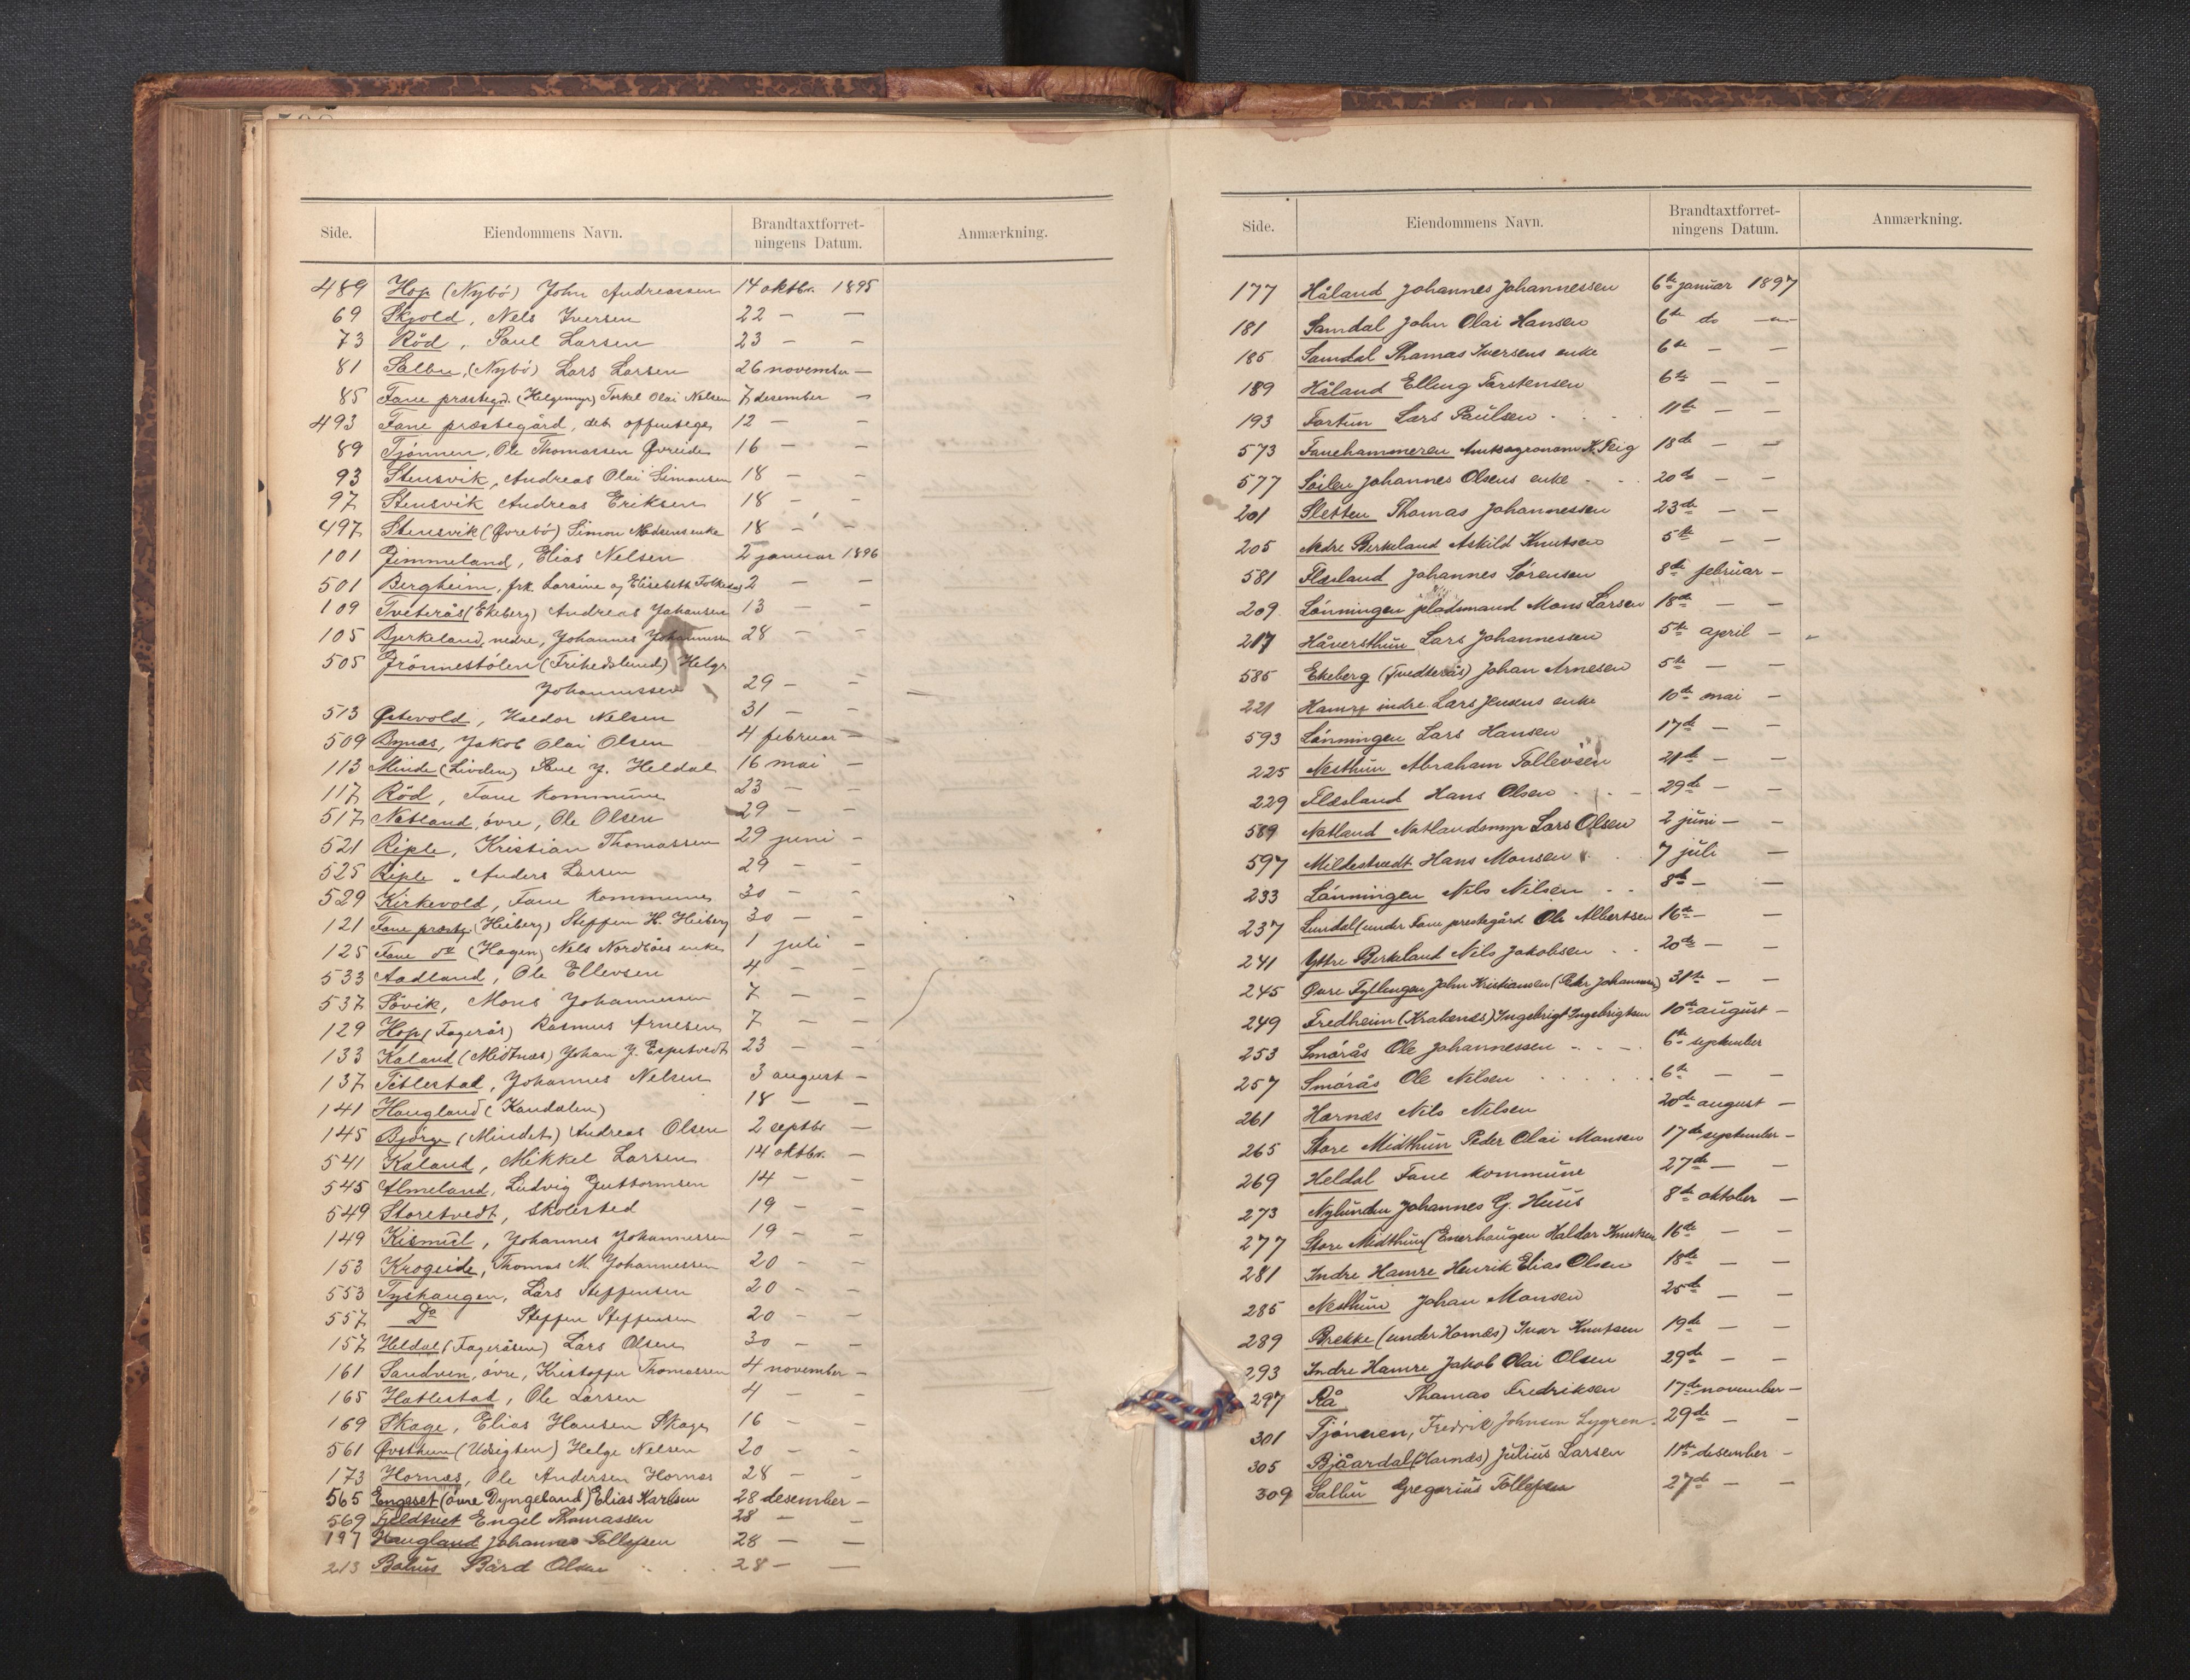 Side. Eiendommens Navn. Brandtaxtforret-
ningens Datum. Anmærkning.
489 Hop (Nybö) John Andreassen 14 oktbr. 1895
69 Skjold, Nels Iversen 22 — —
73 Röd, Paul Larsen 23 — —
81 Sælbu, (Nybö) Lars Larsen 26 november —
85 Fane præstegd. (Helgemyr) Torkel Olai Nelsen 7 desember —
493 Fane præstegård, det offentlige 12 — —
89 Tjönnen, Ole Thomassen Øvreide 16 — —
93 Stensvik, Andreas Olai Simonsen 18 — —
97 Stensvik Andreas Eriksen 18 — —
497 Stensvik (Øvrebö) Simon Madsens enke 18 — —
101 Jimmeland, Elias Nelsen 2 januar 1896
501 Bergheim, frk Larsine og Elisebeth 2 — —
109 Tveterås (Ekeberg) Andreas Johansen 13 — —
105 Bjerkeland, nedre, Johannes Johannessen 28 — —
505 Grönnestölen (Frihedslund) Helge
Johannessen 29 — —
513 Østevold, Haldor Nelsen 31 — —
509 Bynæs, Jakob Olai Olsen 4 februar —
113 Minde (Linden) Paul J. Heldal 16 mai —
117 Röd, Fane kommune 23 — —
517 Natland, övre, Ole Olsen 29 — —
521 Riple, Kristian Thomassen 29 juni —
525 Riple, Anders Larsen 29 — —
529 Kirkevold, Fane kommune 30 — —
121 Fane præstg. (Heiberg) Steffen H. Heiberg 30 — —
125 Fane do (Hagen) Nels Nordåes enke 1 juli —
533 Aadland, Ole Ellevsen 4 — —
537 Sövik, Mons Johannessen 7 — —
129 Hop (Fagerås) Rasmus Arnesen 7 — —
133 Kaland (Midtnæs) Johan J. Espetvedt 23 — —
137 Titlestad, Johannes Nelsen 3 august —
141 Haugland (Kandalen) 18 — —
145 Björge (Mindet) Andreas Olsen 2 septbr —
541 Kaland, Mikkel Larsen 14 oktbr. —
545 Almeland, Ludvig Guttormsen 14 — —
549 Storetvedt, skolested 19 — —
149 Kismul, Johannes Johannessen 19 — —
153 Krogeide, Thomas M. Johannessen 20 — —
553 Tyshaugen, Lars Steffensen 20 — —
557 Do Steffen Steffensen 20 — —
157 Heldal (Fageråsen) Lars Olsen 30 — —
161 Sandven, övre, Kristoffer Thomassen 4 november —
165 Hatlestad, Ole Larsen 4 — —
169 Skage, Elias Hansen Skage 16 — —
561 Øvsthun (Udsigten) Helge Nelsen 20 — —
173 Hornæs, Ole Andersen Hornæs 28 — —
565 Engeset (övre Dyngeland) Elias Karlsen 28 desember —
569 Fjeldtvet Engel Thomassen 28 — —
197 Haugland Johannes Tollefsen 28 — —
213 Bahus Bård Olsen 28 — —
Side. Eiendommens Navn. Brandtaxtforret-
ningens Datum. Anmærkning.
177 Håland Johannes Johannessen 6te januar 1897
181 Samdal John Olai Hansen 6te do —
185 Samdal Thomas Iversens enke 6te — —
189 Håland Elling Torstensen 6te — —
193 Fortun Lars Paulsen 11te — —
573 Fanehammeren Amtsagronom K. Feig 18de — —
577 Söilen Johannes Olsens enke 20de — —
201 Sletten Thomas Johannessen 23de — —
205 Nedre Birkeland Askild Knutsen 5te — —
581 Flæsland Johannes Sörensen 8de februar —
209 Lönningen pladsmand Mons Larsen 18de — —
217 Håversthun Lars Johannessen 5te april —
585 Ekeberg Johan Arnesen 5te — —
221 Hamre indre Lars Jensens enke 10de mai —
593 Lönningen Lars Hansen 17de — —
225 Nesthun Abraham Tollevsen 21de — —
229 Flæsland Hans Olsen 29de — —
589 Natland Natlandsmyr Lars Olsen 2 juni — —
597 Mildestvedt Hans Monsen 7 juli —
233 Lönningen Nils Nilsen 8de — —
237 Lundal (under Fane prestegård Ole Albertsen 16de — —
241 Yttre Birkeland Nils Jakobsen 20de — —
245 Övre Fyllingen John Kristiansen (Peder Johannes) 31te — —
249 Fredheim (Krakenæs) Ingebrigt Ingebrigtsen 10de august —
253 Smörås Ole Johannessen 6te september
257 Smörås Ole Nilsen 6te — —
261 Harnæs Nils Nilsen 20de august —
265 Store Midthun Peder Olai Monsen 17de september —
269 Heldal Fane kommune 27de — —
273 Nylunden Johannes G. Huus 8de oktober —
277 Store Midthun (Enerhaugen Haldor Knutsen 16de — —
281 Indre Hamre Henrik Elias Olsen 18de — —
285 Nesthun Johan Monsen 25de — —
289 Brekke (under Hornæs) Ivar Knutsen 19de — —
293 Indre Hamre Jakob Olai Olsen 29de — —
297 Rå Thomas Fredriksen 17de november —
301 Tjönnen, Fredrik Johnsen Lygren 29de — —
305 Bjåardal (Harnæs) Julius Larsen 11te desember —
309 Sælbu Gregorius Tollefsen 27de — —